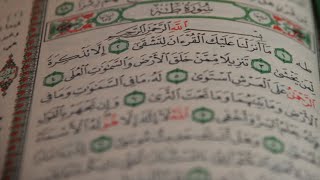 سُورَةُ طٰهٰ
اللَّهِ الرَّحْمَٰنِ الرَّحِيمِ
طه مَا أَنزَلْنَا عَلَيْكَ الْقُرْآنَ لِتَشْقَىٰ إِلَّا تَذْكِرَةً
لِّمَن يَخْشَىٰ تَنزِيلًا مِّمَّنْ خَلَقَ الْأَرْضَ وَالسَّمَٰوَٰتِ الْعُلَى
الرَّحْمَٰنُ عَلَى الْعَرْشِ اسْتَوَىٰ لَهُ مَا فِي السَّمَٰوَٰتِ وَمَا فِي
الْأَرْضِ وَمَا بَيْنَهُمَا وَمَا تَحْتَ الثَّرَىٰ وَإِن تَجْهَرْ بِالْقَوْلِ
اللَّهُ لَا إِلَٰهَ إِلَّا هُوَ لَهُ الْأَسْمَاءُ